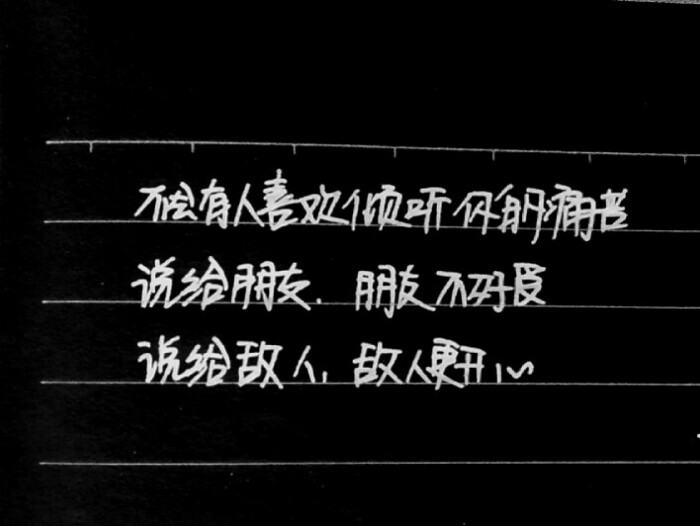 不会有人喜欢倾听你的痛苦
说给朋友，朋友不好受
说给敌人，敌人更开心